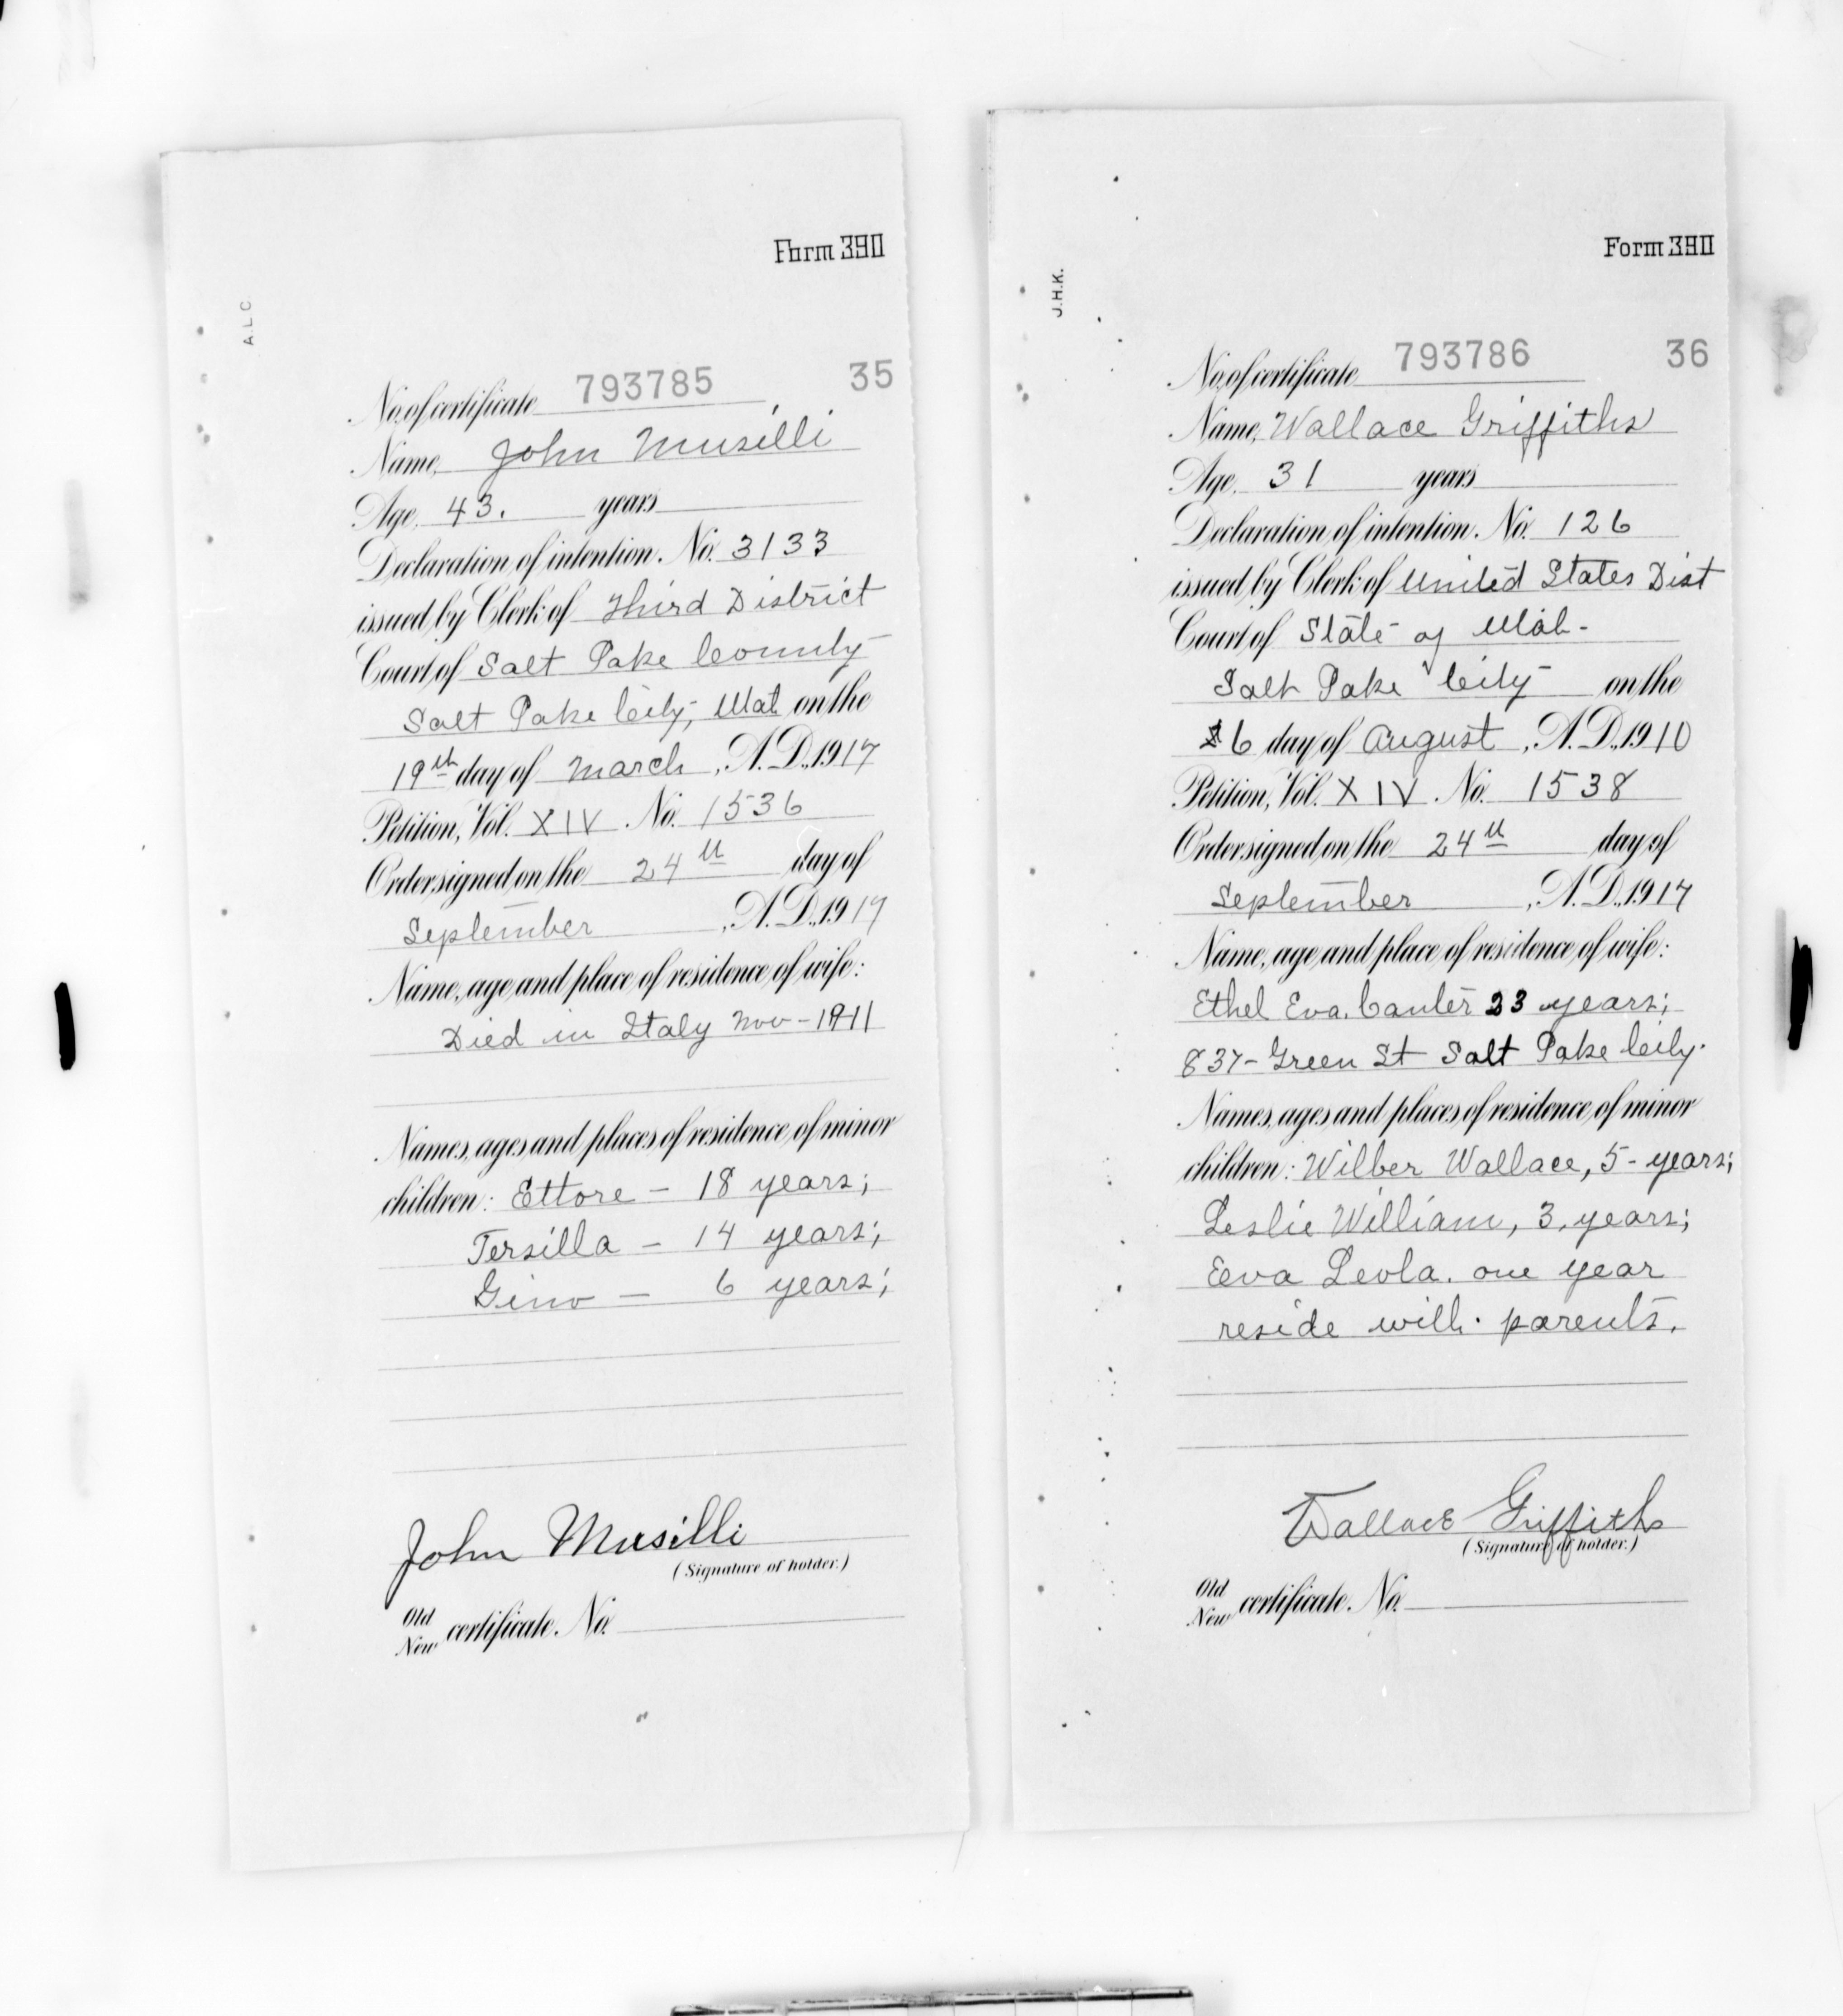 Form 390
A.L.C
No. of certificate 793785 35
Name, John Musilli
Age, 43. years
Declaration of intention. No. 3133
issued by Clerk of Third District
Court of Salt Lake County
Salt Lake City, Utah on the
19th day of March, A.D., 1917
Petition, Vol. XIV. No. 1536
Order signed on the 24th day of
September, A.D., 1917
Name, age and place of residence of wife:
Died in Italy Nov - 1911
Names, ages and places of residence of minor
children: Ettore - 18 years;
Tersilla - 14 years;
Gino - 6 years;
John Musilli
(Signature of holder.)
Old
New certificate. No.
Form 390
J.H.K.
No. of certificate 793786 36
Name, Wallace Griffiths
Age, 31 years
Declaration of intention. No. 126
issued by Clerk of United States Dist
Court of State of Utah -
Salt Lake City on the
6 day of August, A.D., 1910
Petition, Vol. XIV. No. 1538
Order signed on the 24th day of
September, A.D., 1917
Name, age and place of residence of wife:
Ethel Eva. 23 years;
837 - Green St Salt Lake City.
Names, ages and places of residence of minor
children: Wilber Wallace, 5 - years;
Leslie William, 3, years;
Eva Leola. one year
reside with. parents.
Wallace Griffiths
(Signature of holder.)
Old
New certificate. No.